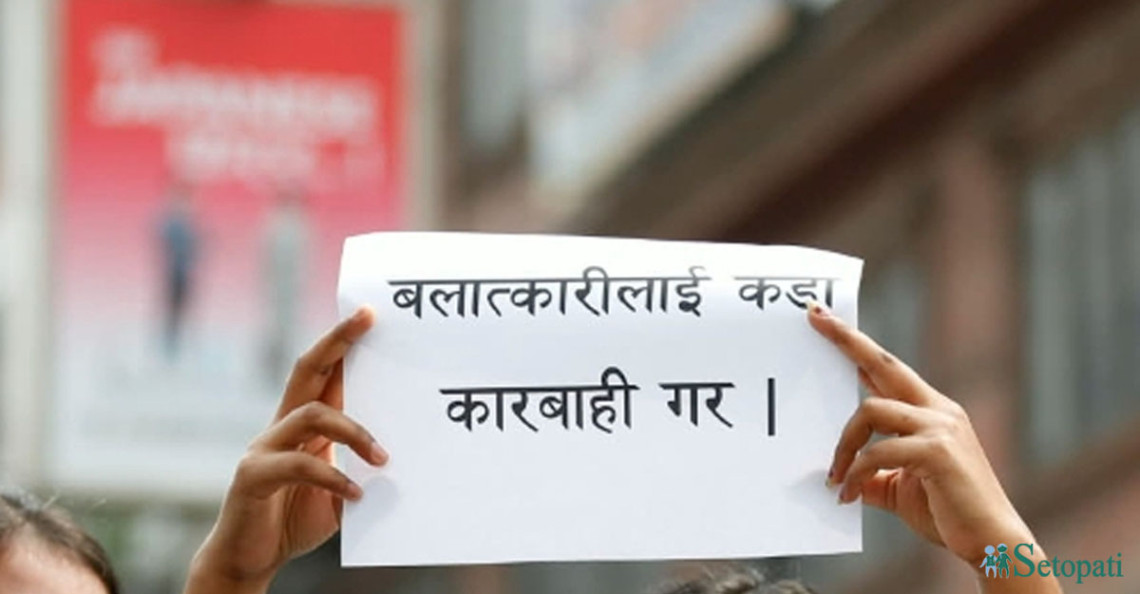 बलात्कारीलाई कडा
कारबाही गर |
Setopati